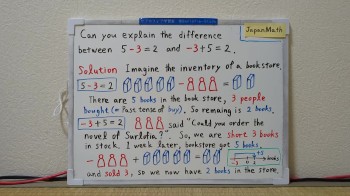 JapanMath
Can you explain the difference
between 5-3=2 and -3+5=2.
Solution Imagine the inventory of a bookstore.
5-3=2 =
There are 5 books in the book store, 3 people
bought (= Past tense of buy). So remaing is 2 books.
-3+5=2 said "Could you order the
novel of Surlotia?" So, we are short 3 books
in stock. 1 week later, bookstore got 5 books.
- + =
and sold 3, so we now have 2 books in the store.